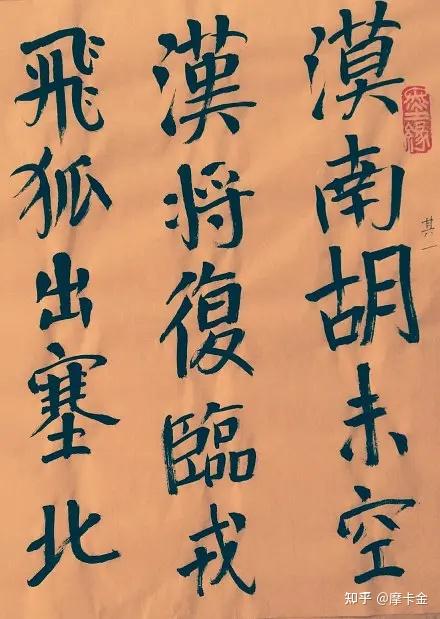 漠南胡未空
漢将復臨戎
飛狐出塞北
其一
知乎 @摩卡金